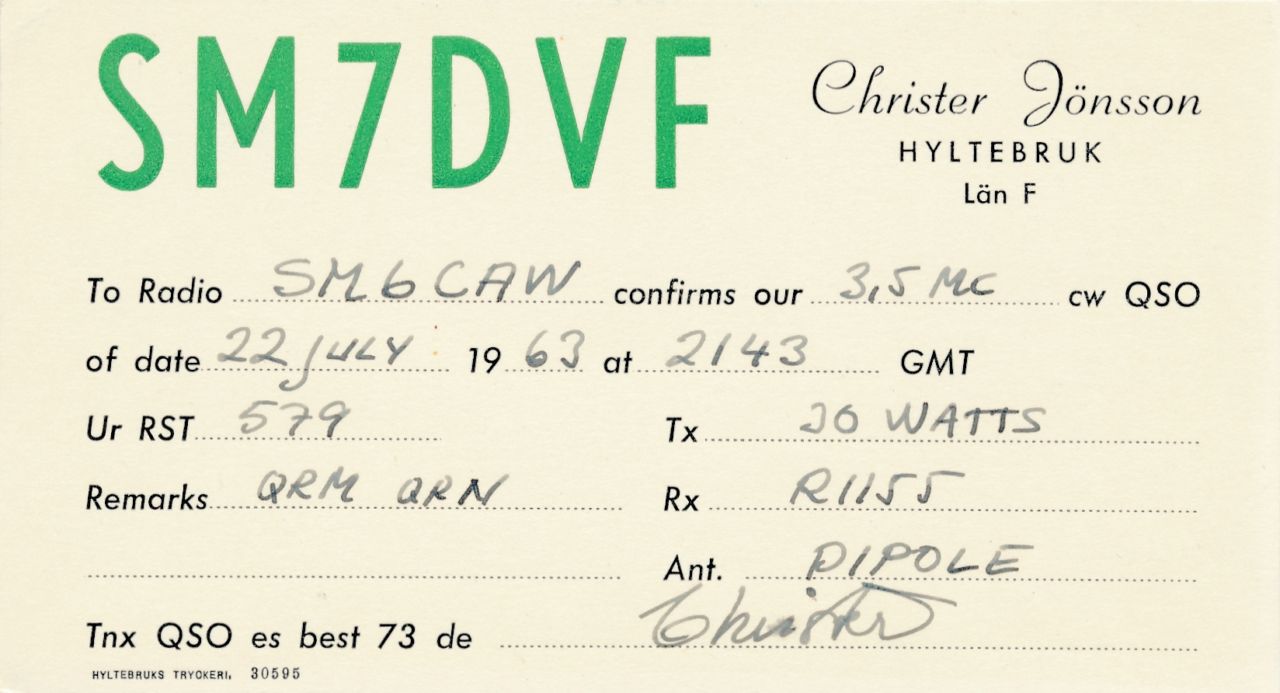 SM7DVF
Christer Jönsson
HYLTEBRUK
Län F
To Radio SM6CAW confirms our 3,5 MC cw QSO
of date 22 JULY 1963 at 2143 GMT
Ur RST 579
Tx WATTS
Remarks QRM QRN
Rx R1155
Ant. DIPOLE
Tnx QSO es best 73 de Christer
HYLTEBRUKS TRYCKERI, 30595